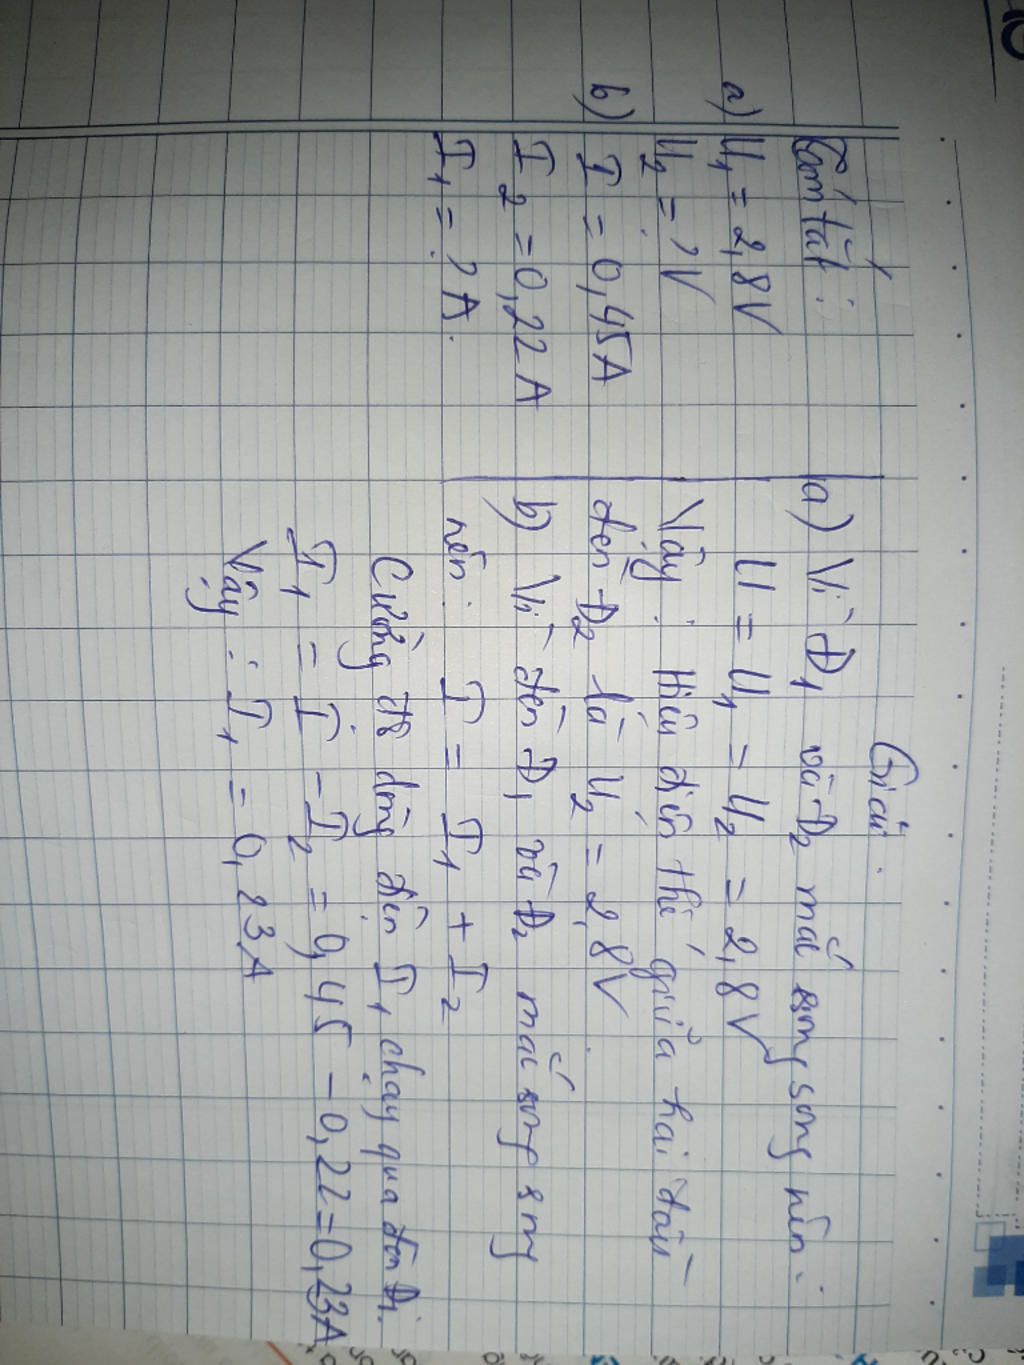 Giải:
Tóm tắt:
a) U1 = 2,8V
U2 = ? V
b) I = 0,45A
I2 = 0,22 A
I1 = ? A.
a) Vì Đ1 và Đ2 mắc song song nên:
U = U1 = U2 = 2,8V
Vậy: Hiệu điện thế giữa hai đầu
đèn Đ2 là U2 = 2,8V.
b) Vì đèn Đ1 và Đ2 mắc song song
nên: I = I1 + I2
Cường độ dòng điện I1 chạy qua đèn Đ1.
I1 = I - I2 = 0,45 - 0,22 = 0,23A
Vậy: I1 = 0,23A